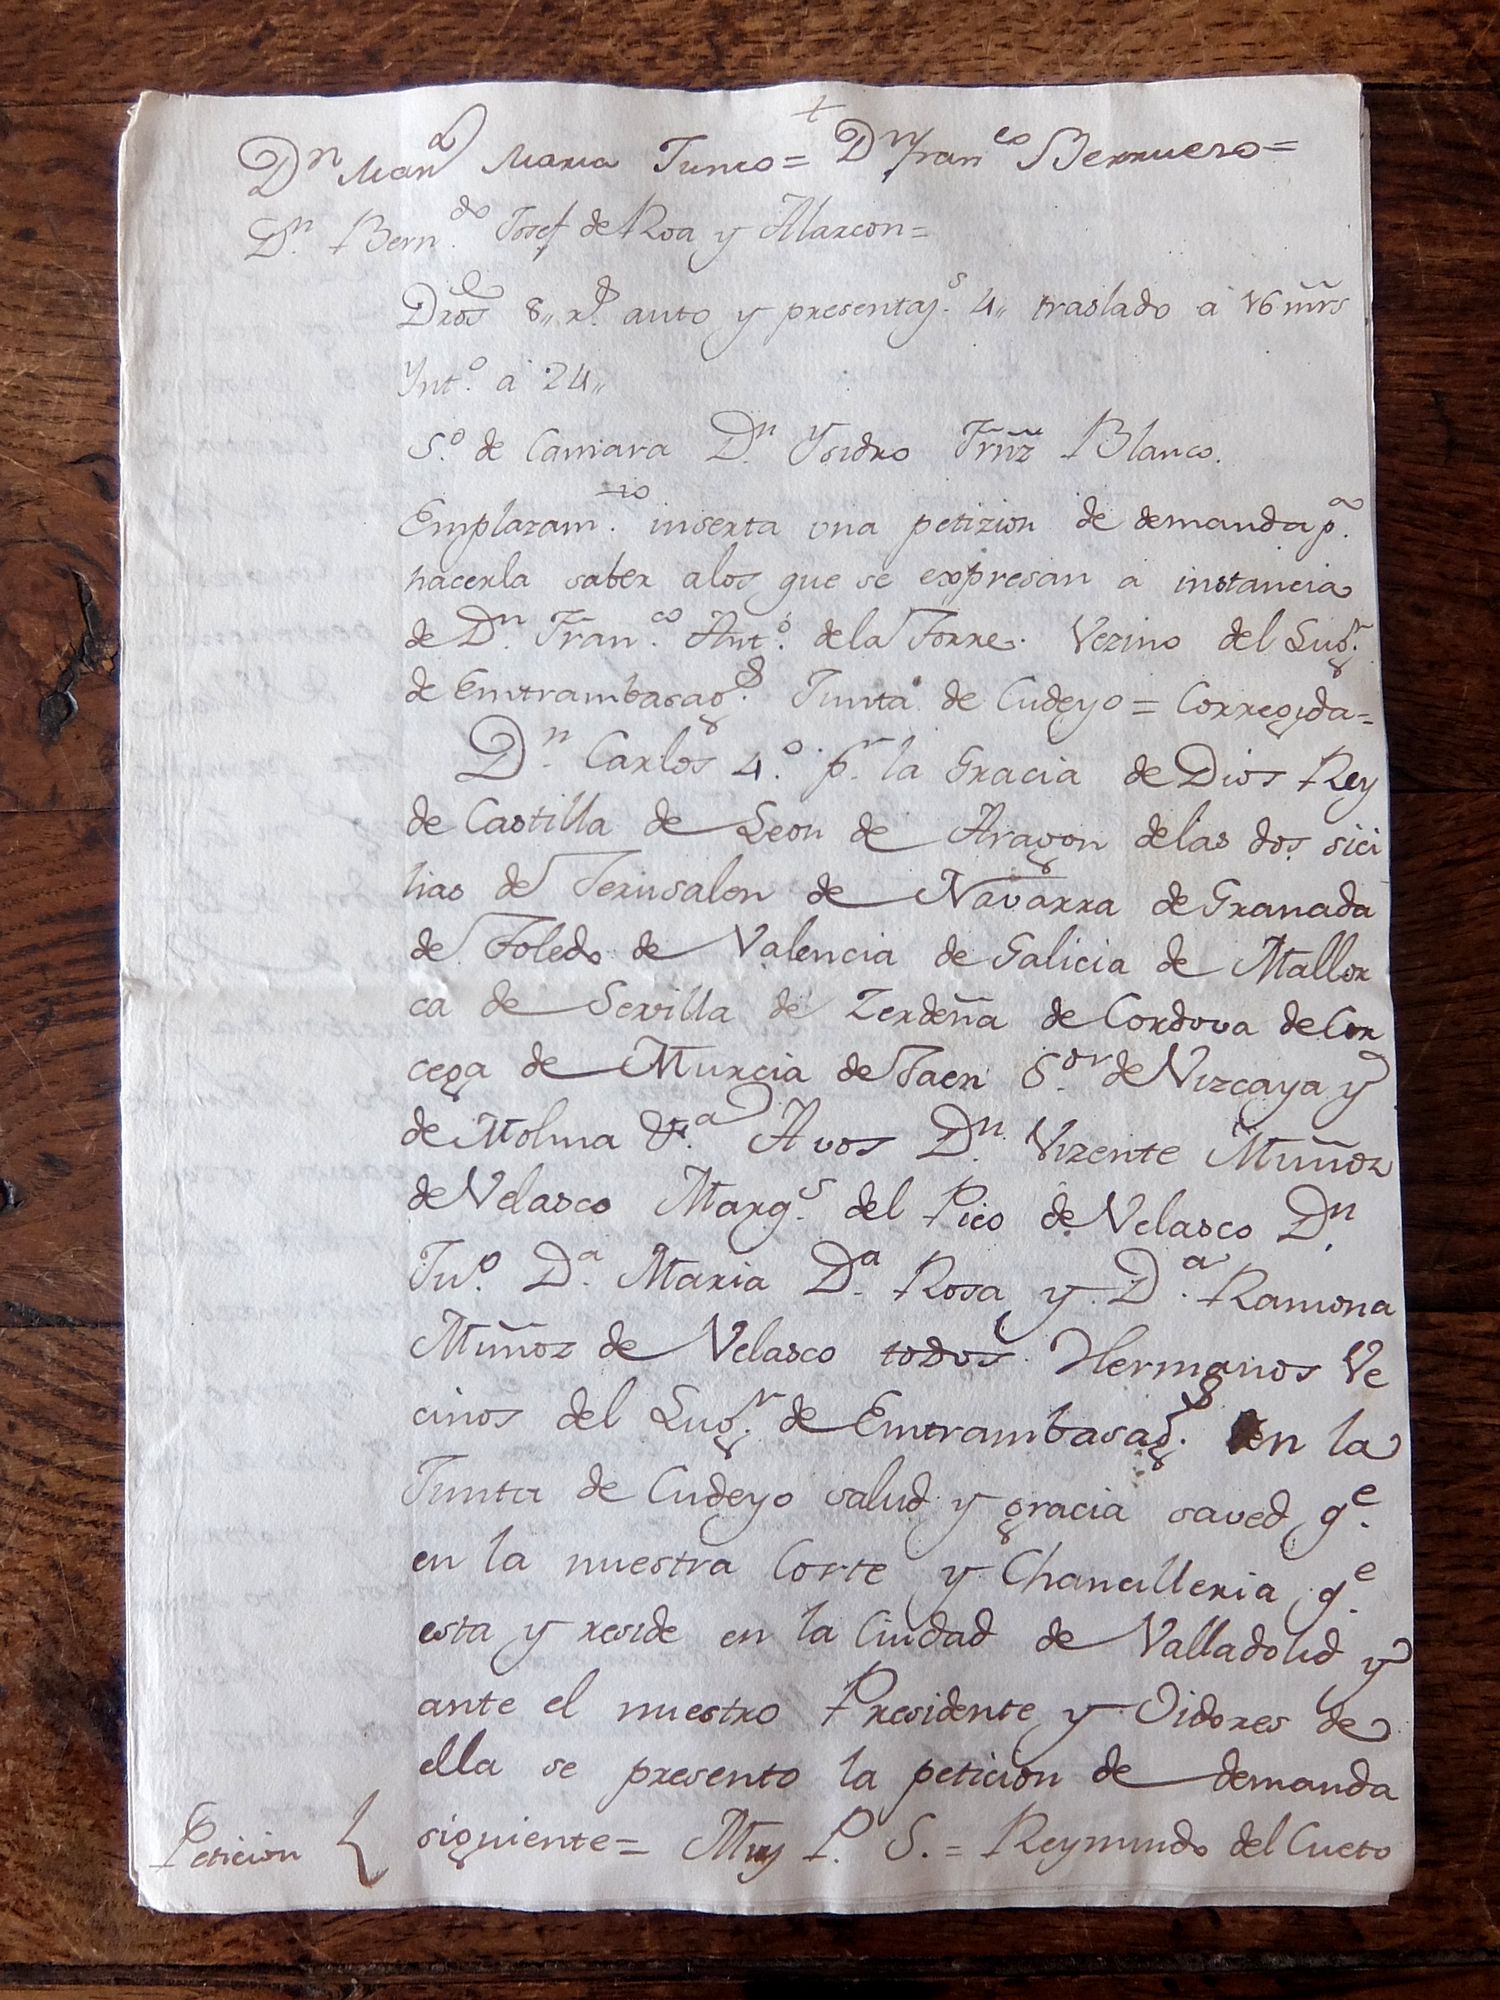 +
Dn Manl Maria Junco = Dn Franco Berruezo =
Dn. Berndo. Josef de Roa y Alarcon =
Dros 8,, rs. auto y presentajs. 4,, traslado à 16 mrs
Ynto. à 24,,
So. de Camara Dn. Ysidro Frñz Blanco.
Emplazamto. inserta una petizion de demanda pa.
hacerla saber alos que se expresan a instancia
de Dn. Franco. Anto. dela Torre. Vezino del Lugr.
de Emtrambasags. Junta de Cudeyo = Corregida =
Dn. Carlos 4.o pr. la Gracia de Dios Rey
de Castilla de Leon de Aragon delas dos sici
lias de Jerusalen de Navarra de Granada
de Toledo de Valencia de Galicia de Mallor
ca de Sevilla de Zerdeña de Cordova de Cor
cega de Murcia de Jaen Sor. de Vizcaya y
de Molina &a. A vos Dn. Vizente Muñoz
de Velasco Marqs. del Pico de Velasco Dn.
Juo. Da. Maria Da. Rosa y Da. Ramona
Muñoz de Velasco todos Hermanos Ve
cinos del Lugr. de Emtrambasags. en la
Junta de Cudeyo salud y gracia saved qe.
en la nuestra Corte y Chancilleria qe.
esta y reside en la Ciudad de Valladolid y
ante el nuestro Presidente y Oidores de
ella se presento la peticion de demanda
Peticion { siguiente = Muy P. S. = Reymundo del Cueto